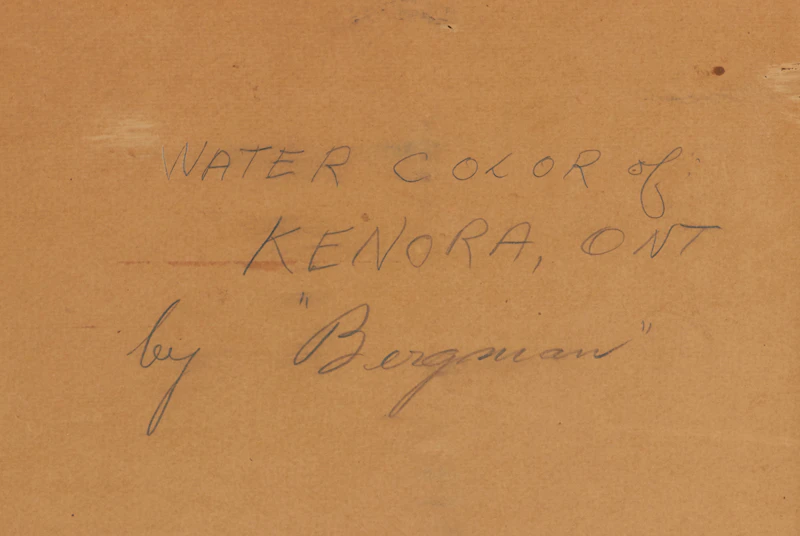 WATER COLOR of
KENORA, ONT
by "Bergman"